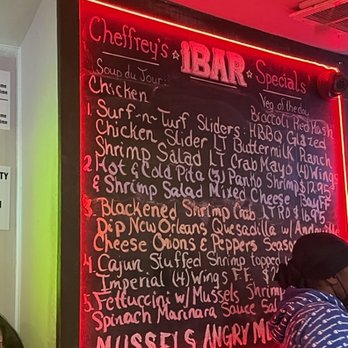 Cheffrey's 1BAR Specials
Soup du Jour: Veg of the day:
Chicken Broccoli Red Mash
1. Surf-n-Turf Sliders: HBBQ Glazed
Chicken Slider LT Buttermilk Ranch
Shrimp Salad LT Crab Mayo (4) Wings
2. Hot & Cold Pita (3) Panko Shrimp $12.95
& Shrimp Salad Mixed Cheese
3. Blackened Shrimp Crab $16.95
Dip New Orleans Quesadilla w/
Cheese Onions & Peppers
4. Cajun Stuffed Shrimp topped
Imperial (4) Wings F.F.
5. Fettuccini w/ Mussels Shrimp
Spinach Marinara Sauce
MUSSELS ANGRY